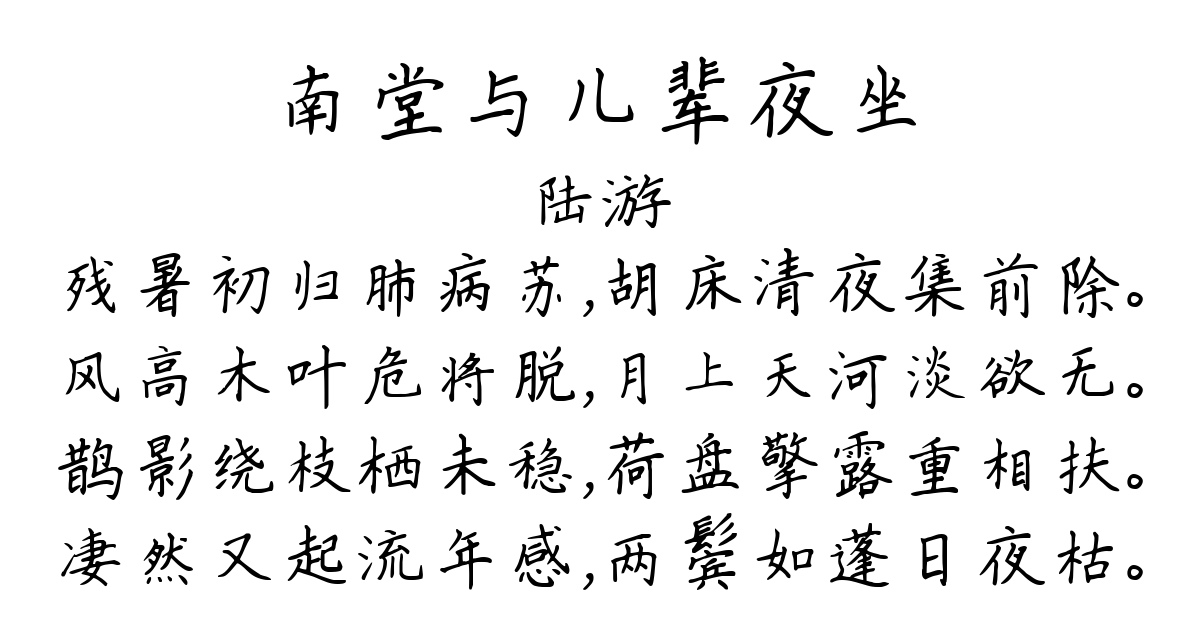 南堂与儿辈夜坐
陆游
残暑初归肺病苏,胡床清夜集前除。
风高木叶危将脱,月上天河淡欲无。
鹊影绕枝栖未稳,荷盘擎露重相扶。
凄然又起流年感,两鬓如蓬日夜枯。